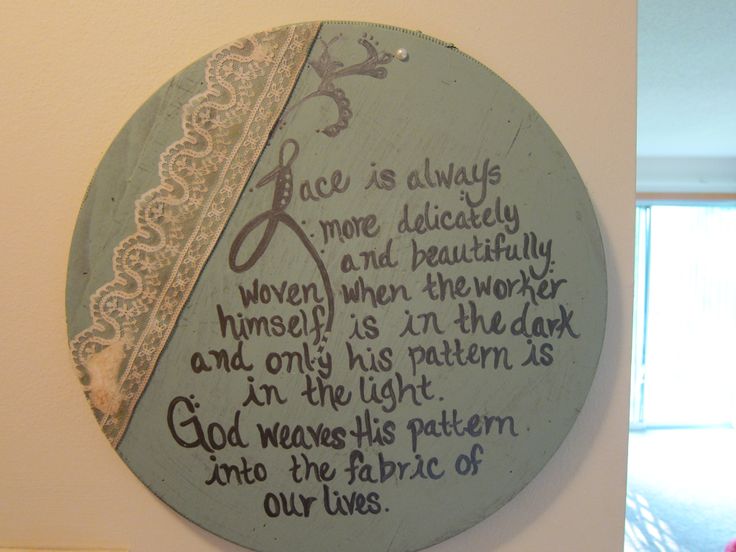 Lace is always
more delicately
and beautifully
woven when the worker
himself is in the dark
and only his pattern is
in the light.
God weaves His pattern
into the fabric of
our lives.